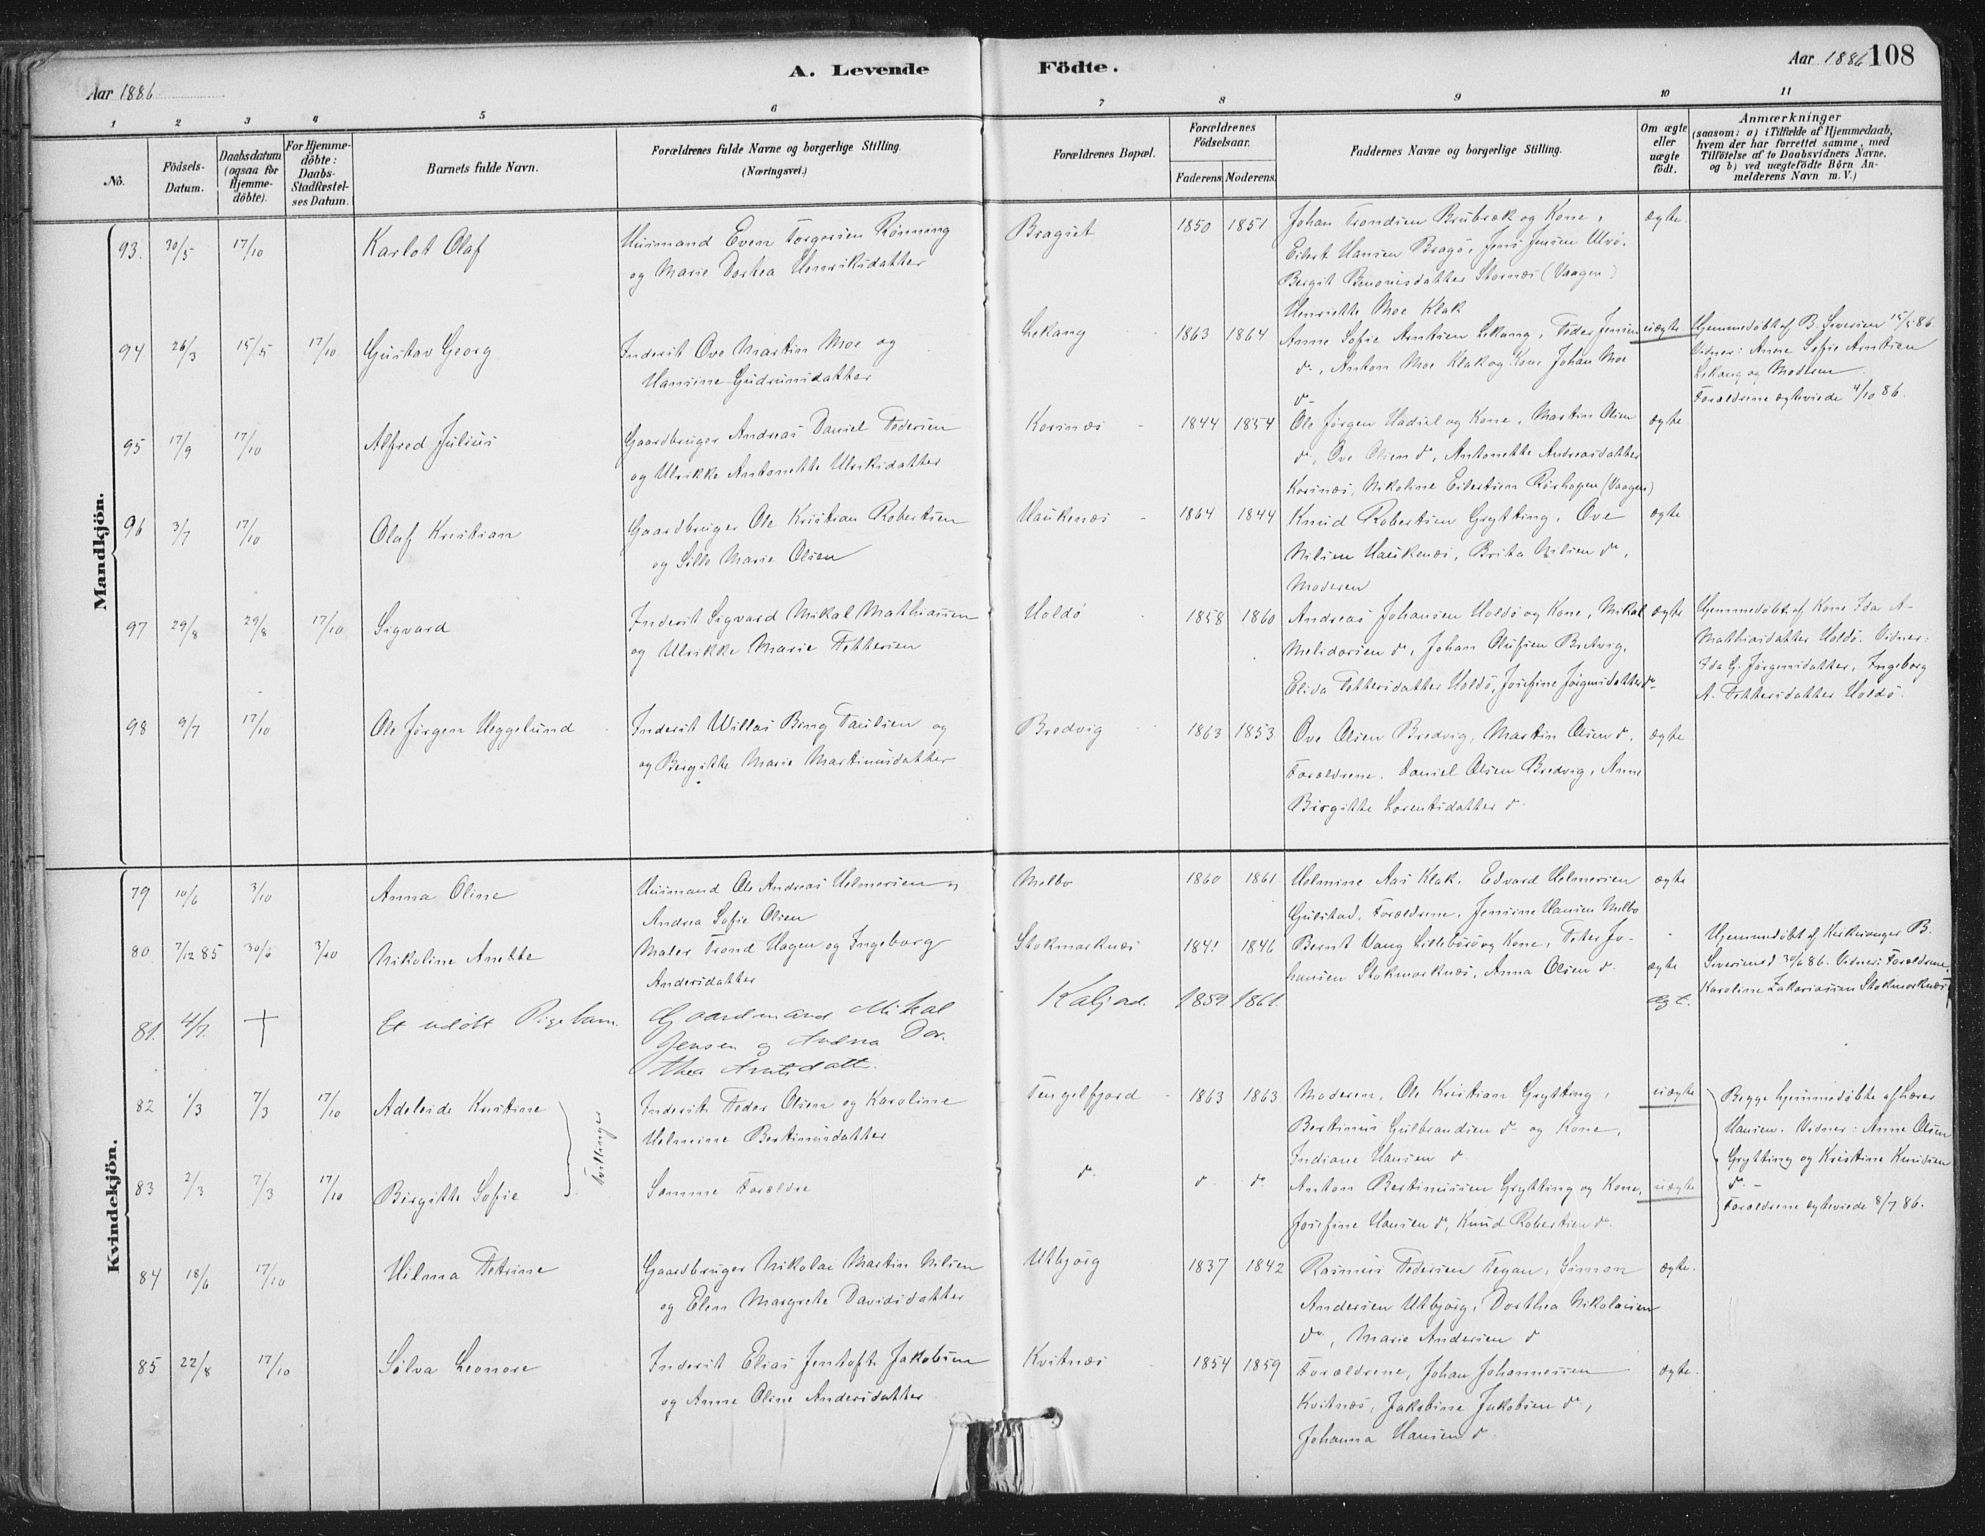 Aar 1886
A. Levende Födte.
Aar 1886 108
1 2 3 4 5 6 7 8 9 10 11
No.
Födsels-Datum.
Daabsdatum (ogsaa for Hjemme-døbte).
For Hjemme-døbte: Daabs-Stadfæstel-ses Datum.
Barnets fulde Navn.
Forældrenes fulde Navne og borgerlige Stilling.
(Næringsvei.)
Forældrenes Bopæl.
Forældrenes Födselsaar.
Faderens. Moderens.
Faddernes Navne og borgerlige Stilling.
Om ægte eller uægte födt.
Anmærkninger
(saasom: a) i Tilfælde af Hjemmedaab,
hvem der har forrettet samme, med
Tilföielse af to Daabsvidners Navne,
og b) ved uægtefödte Börn An-
melderens Navn m. V.)
Mandkjön.
93. 30/5 17/10 Karlot Olaf
Husmand Even Torgersen Rönning
og Marie Dorthea Henriksdatter
Bragset 1850 1851
Johan Trondsen Brubræk og Kone,
Eilert Hansen Bragö, Jens Jensen Ulvö,
Bergit Benonisdatter Stornæs (Vaagen)
Henriette Moe Klak
ægte
94 26/3 15/5 17/10 Gustav Georg
Inderst Ove Martin Moe og
Hansine Gudrunsdatter
Lekang 1863 1864
Anne Sofie Arntsen Lekang, Peder Jensen
do, Anton Moe Klak og Kone, Johan Moe
do
uægte
Hjemmedøbt af B. Sivertsen 15/5 86.
Vidner: Anne Sofie Arntsen
Lekang og Moderen
Forældrene ægteviede 4/10 86.
95 17/9 17/10 Alfred Julius
Gaardbruger Andreas Daniel Pedersen
og Ulrikke Antonette Ulriksdatter
Korsnæs 1844 1854
Ole Jørgen Hadsel og Kone, Martin Olsen
do, Ove Olsen do, Antonette Andreasdatter
Korsnæs, Nikoline Eilertsen Rørhogen (Vaagen)
ægte
96 3/7 17/10 Olaf Kristian
Gaardbruger Ole Kristian Robertsen
og Silla Marie Olsen
Haukenæs 1864 1844
Knud Robertsen Grytting, Ove
Nilsen Haukenæs, Brita Nilsen do,
Moderen
ægte
97 29/8 29/8 17/10 Sigvard
Inderst Sigvard Mikal Mathiassen
og Ulrikke Marie Pettersen
Holdö 1858 1860
Andreas Johansen Holdö og Kone, Mikal
Melidorsen do, Johan Olufsen Bredvig,
Elisa Pettersdatter Holdö, Josefine Jørgensdatter do
ægte
Hjemmedøbt af Kone Ida A-
Mathiasdatter Holdö. Vidner:
Ida G. Jørgensdatter, Ingeborg
A. Pettersdatter Holdö.
98 9/7 17/10 Ole Jørgen Heggelund
Inderst Willas Bing Paulsen og
og Bergitte Marie Martinusdatter
Bredvig 1863 1853
Ove Olsen Bredvig, Martin Olsen do,
Forældrene, Daniel Olsen Bredvig, Anne
Birgitte Lorentsdatter do
ægte
Kvindekjön.
79 10/6 3/10 Anna Oline
Husmand Ole Andreas Helmersen og
Andrea Sofie Olsen
Melbo 1860 1861
Helmine Aas Klak, Edvard Helmersen
Gulstad, Forældrene, Jensine Hansen Melbo
ægte
80 7/12 85 30/6 3/10 Nikoline Anette
Maler Trond Hagen og Ingeborg
Andersdatter
Stokmarknæs 1841 1846
Bernt Vang Lillebørö og Kone, Peter Jo-
hansen Stokmarknæs, Anna Olsen do
ægte
Hjemmedøbt af Kirkesanger B.
Sivertsen d. 30/6 86. Vidner: Forældrene,
Karoline Zakariassen Stokmarknæs
81. 4/7. † Et udöbt Pigebarn.
Gaardmand Mikal
Jensen og Andrea Dor-
thea Arntsdatt.
Kaljord. 1859. 1861.
ægt.
82 1/3 7/3 17/10 Adeleide Kristine
Tvillinger
Inderst Peder Olsen og Karoline
Helmine Bertinusdatter
Tengelfjord 1863 1863
Moderen, Ole Kristian Grytting,
Bertinus Gulbrandsen do og Kone,
Indiane Hansen do
uægte
Begge hjemmedøbte af Lærer
Hansen. Vidner: Anne Olsen
Grytting og Kristine Knudsen
do -
Forældrene ægteviede 8/7 86.
83 2/3 7/3 17/10 Birgitte Sofie
Samme Forældre
do do do
Anton Bertinussen Grytting og Kone,
Josefine Hansen do, Knud Robertsen do
uægte
84 18/6 17/10 Hilma Petrine
Gaardbruger Nikolai Martin Nilsen
og Elen Margrete Davidsdatter
Utbjørg 1837 1842
Rasmus Pedersen Fegan, Simon
Andersen Utbjørg, Dorthea Nikolaisen
do, Marie Andersen do
ægte.
85 22/8 17/10 Sølva Leonore
Inderst Elias Jentoft Jakobsen
og Anne Oline Andersdatter
Kvitnæs 1854 1859
Forældrene, Johan Johannessen
Kvitnæs, Jakobine Jakobsen do,
Johanna Hansen do
ægte.